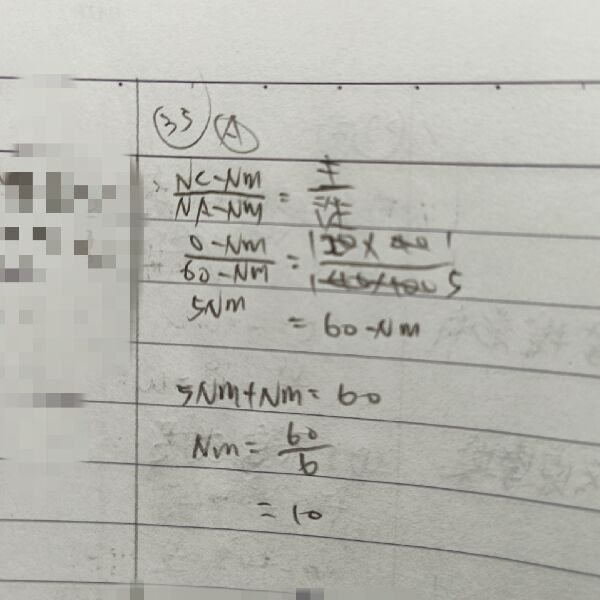 35 A
NC-Nm / NA-Nm =
0-Nm / 60-Nm = 1 / 5
5Nm = 60-Nm
5Nm+Nm=60
Nm = 60 / 6
= 10